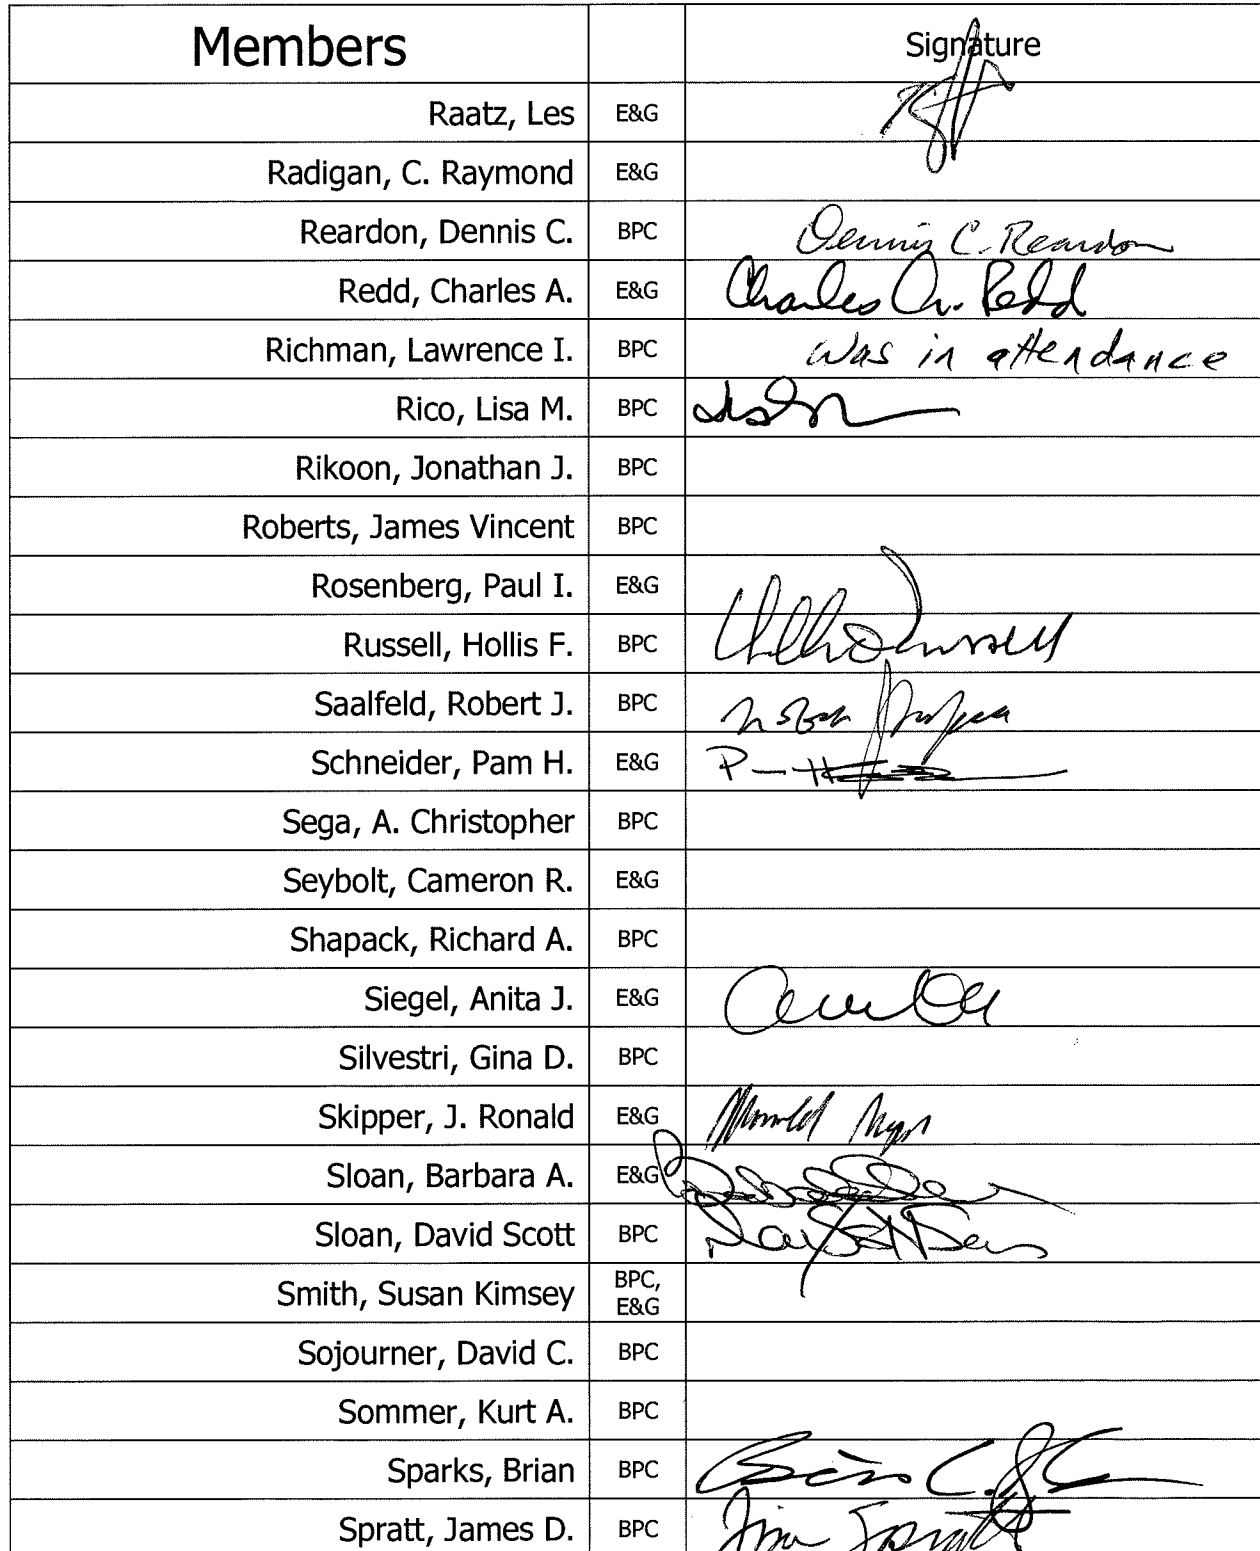 Members Signature
Raatz, Les E&G
Radigan, C. Raymond E&G
Reardon, Dennis C. BPC Dennis C. Reardon
Redd, Charles A. E&G Charles A. Redd
Richman, Lawrence I. BPC was in attendance
Rico, Lisa M. BPC
Rikoon, Jonathan J. BPC
Roberts, James Vincent BPC
Rosenberg, Paul I. E&G
Russell, Hollis F. BPC
Saalfeld, Robert J. BPC
Schneider, Pam H. E&G
Sega, A. Christopher BPC
Seybolt, Cameron R. E&G
Shapack, Richard A. BPC
Siegel, Anita J. E&G
Silvestri, Gina D. BPC
Skipper, J. Ronald E&G
Sloan, Barbara A. E&G
Sloan, David Scott BPC
Smith, Susan Kimsey BPC, E&G
Sojourner, David C. BPC
Sommer, Kurt A. BPC
Sparks, Brian BPC
Spratt, James D. BPC Jim Spratt